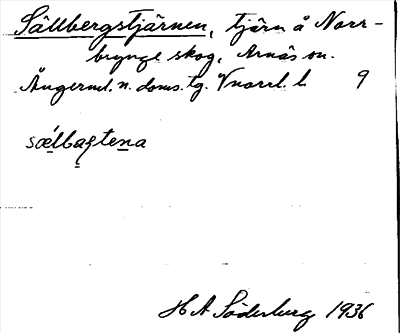 Sällbergstjärnen, tjärn å Norr-
brynge skog, Arnäs sn.
Ångerml. n. doms. tg. Vnorrl. l. 9
sællbaʂtena
H A Söderberg 1936